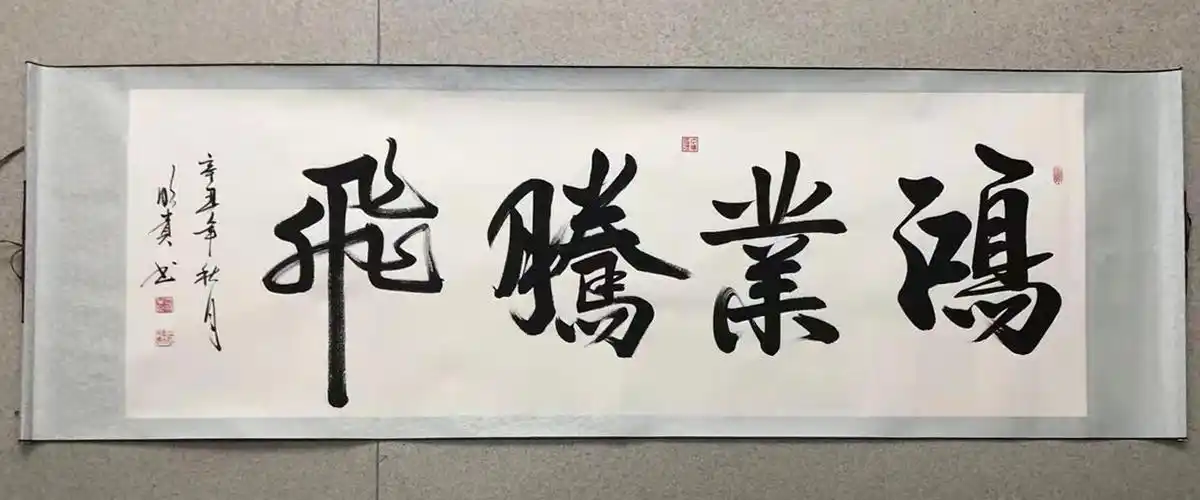 鴻業騰飛
辛丑年秋月
明貴书